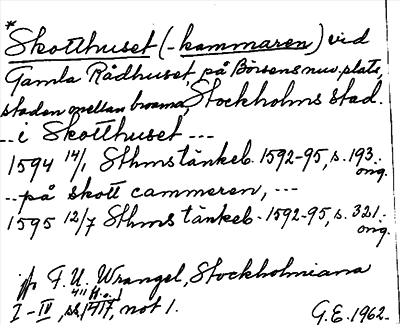 *
Skotthuset (-kammaren) vid
Gamla Rådhuset, på Börsens nuv. plats,
staden mellan broarna, Stockholms stad.
... i Skotthuset ---
1594 14/1 Sthms tänkeb. 1592-95, s. 193.
orig.
... på skott cammeren, ---
1595 12/7 Sthms tänkeb. 1592-95, s. 321.
orig.
jfr F.U. Wrangel, Stockholmiana
I-IV, ss. 417, not 1.
G.E. 1962.